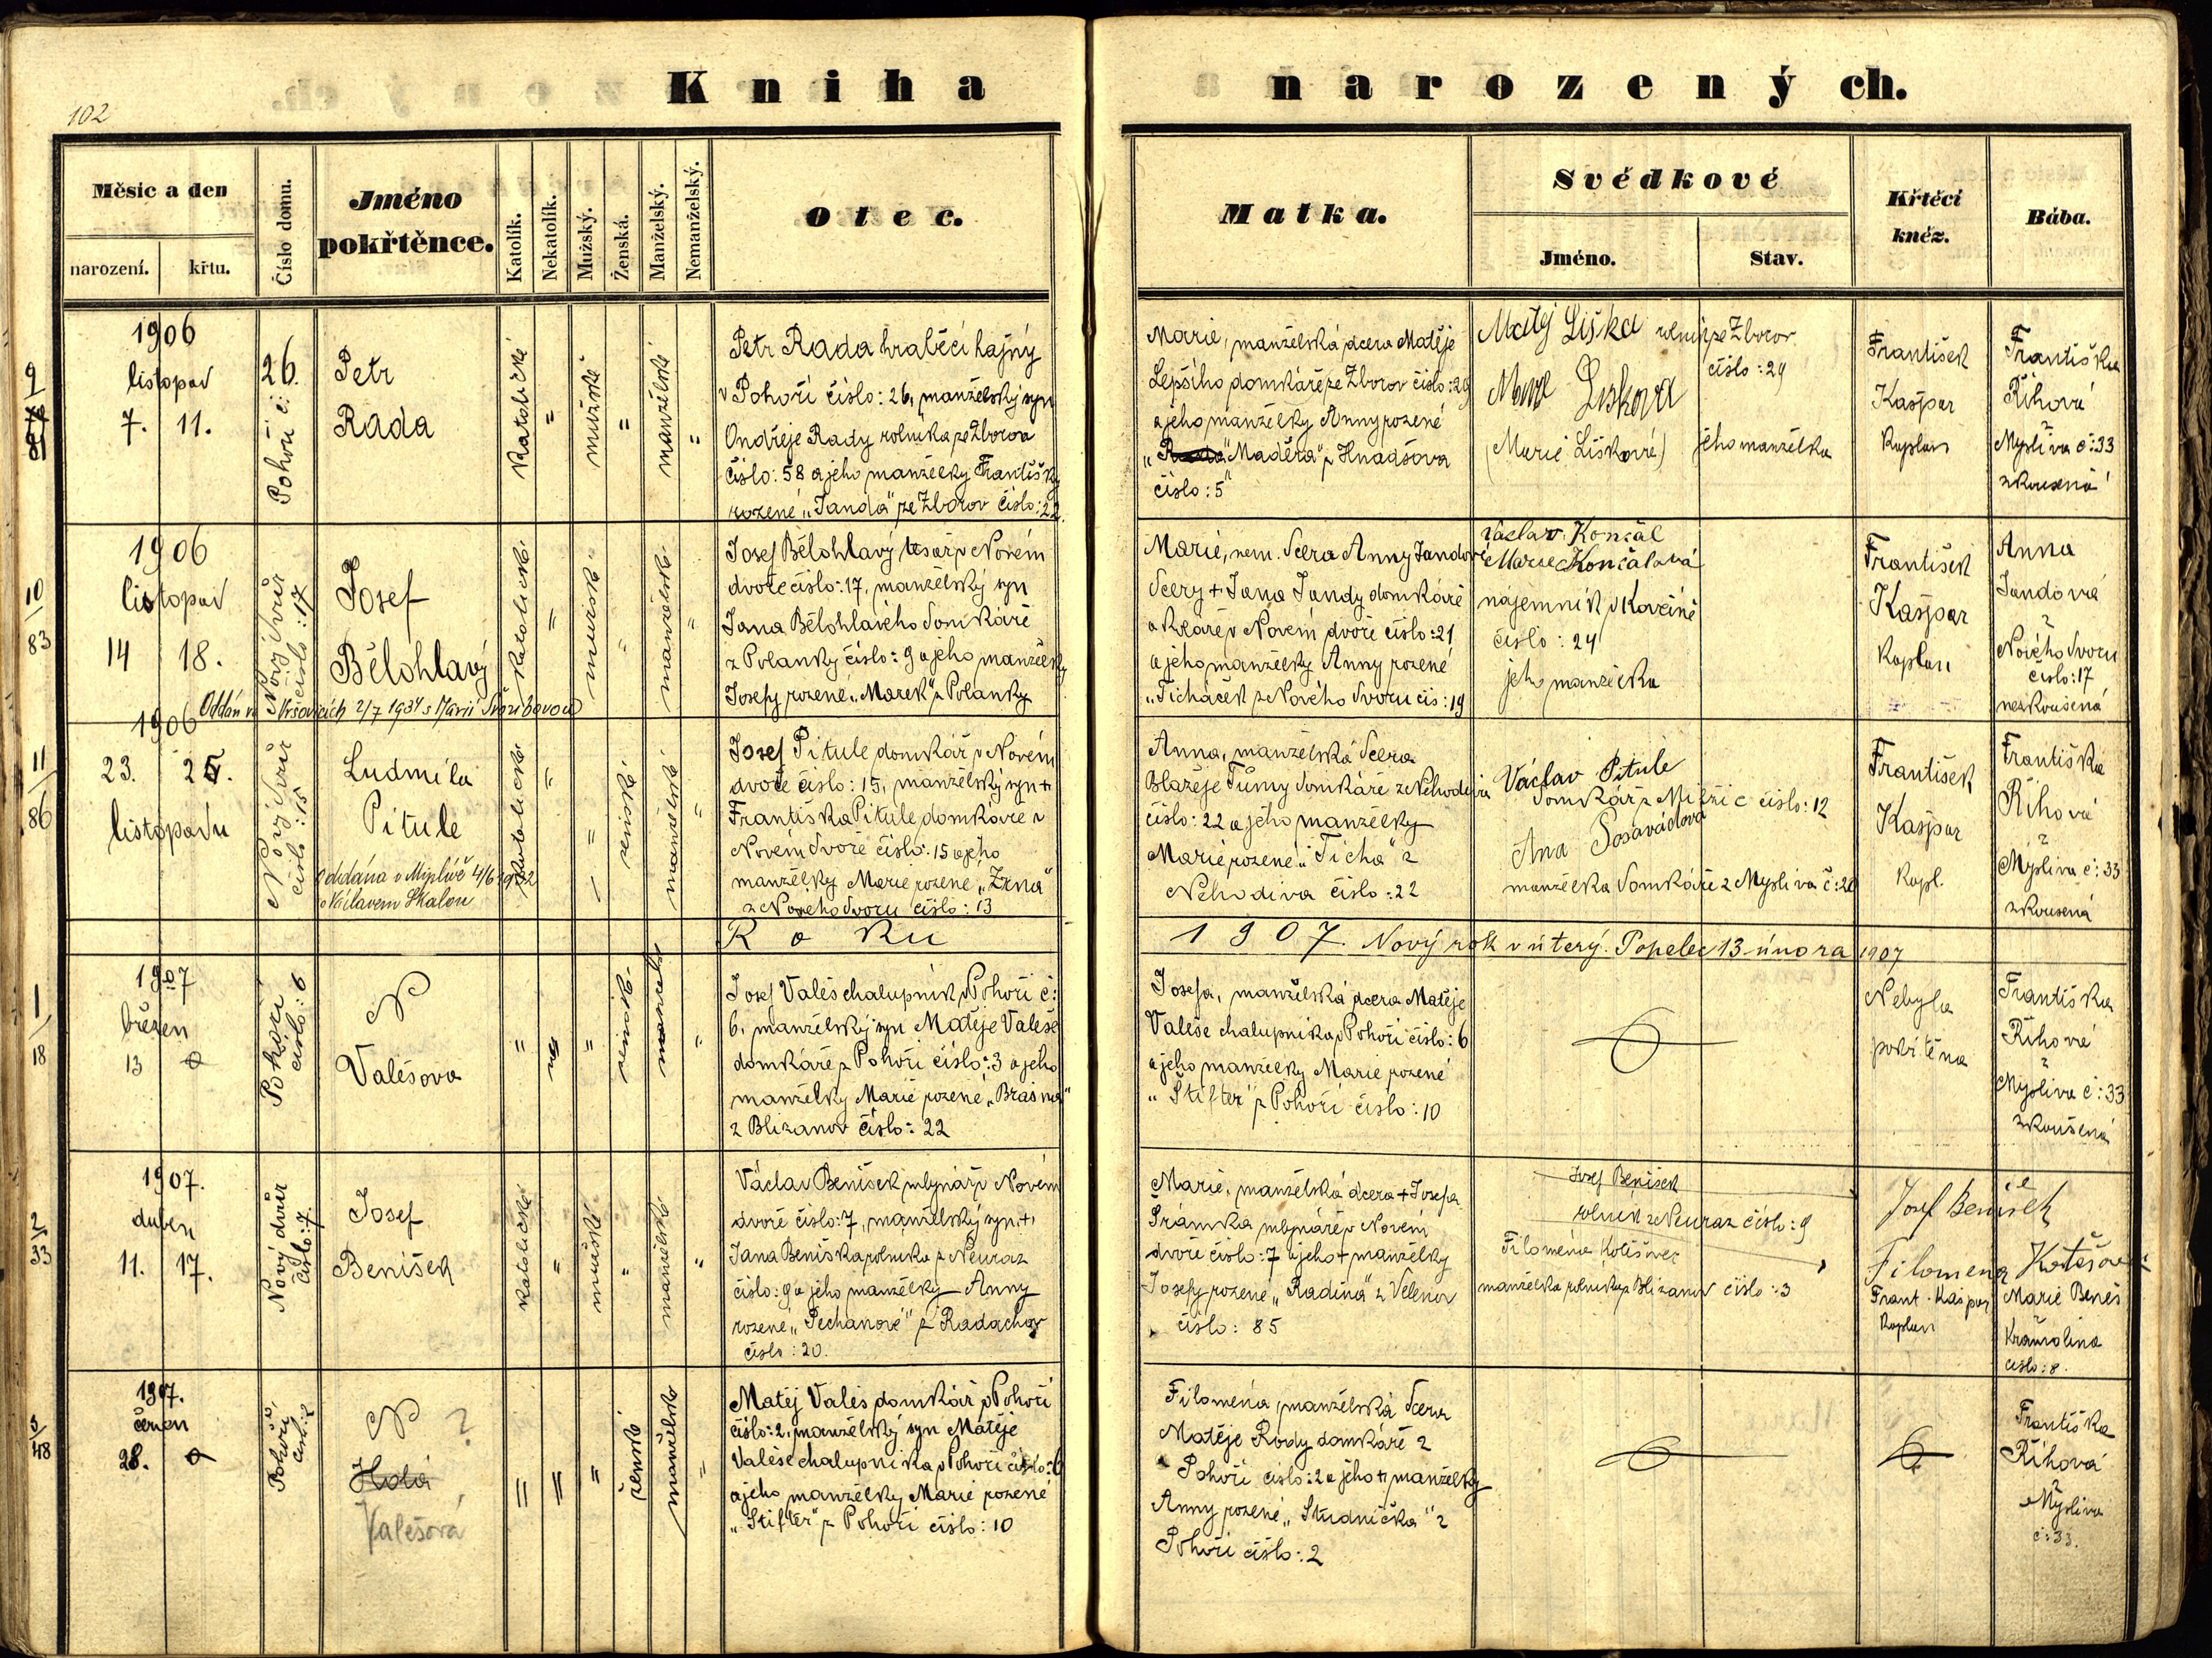 102
Kniha narozených.
Měsíc a den
narození.
křtu.
Číslo domu.
Jméno
pokřtěnce.
Katolík.
Nekatolík.
Mužský.
Ženská.
Manželský.
Nemanželský.
Otec.
Matka.
Svědkové
Jméno.
Stav.
Křtěcí
kněz.
Bába.
9
1906
listopad
7. 11.
Pohoří č: 26.
Petr
Rada
Katolické
=
mužské
=
manželské
=
Petr Rada hraběcí hajný
v Pohoří číslo: 26, manželský syn
Ondřeje Rady rolníka ze Zborova
číslo: 58 a jeho manželky Františky
rozené „Janda" ze Zborov číslo: 22.
Marie, manželská dcera Matěje
Lepšího domkáře ze Zborov číslo: 29
a jeho manželky Anny rozené
„Maděra" z Hnačova
číslo: 5
Matěj Liška rolník ze Zborov
číslo: 29
Marie Lišková
(Marie Lišková) jeho manželka
František
Kašpar
Kaplan
Františka
Říhová
z
Myslíva č: 33
zkoušená
10
83
1906
listopad
14 18.
Nový dvůr
číslo: 17
Josef
Bělohlavý
Oddán ve Vršovicích 2/7 1934 s Marií
Katolické
=
mužské
=
manželské
=
Josef Bělohlavý tesař v Novém
dvoře číslo: 17, manželský syn
Jana Bělohlavého domkáře
z Polánky číslo: 9 a jeho manželky
Josefy rozené „Marek" z Polánky
Marie, nem. dcera Anny Jandové
dcery + Jana Jandy domkáře
v Novém dvoře číslo: 21
a jeho manželky Anny rozené
„Ticháček z Nového dvoru čís: 19
Václav Končal
Marie Končalová
nájemník v Kovčíně
číslo: 24
jeho manželka
František
Kašpar
Kaplan
Anna
Jandová
z
Nového dvoru
číslo: 17
nezkoušená
11
86
1906
23. 25.
listopadu
Nový dvůr
číslo: 15
Ludmila
Pitule
Oddána v Myslívě 4/6 1932
s Václavem Skalou
Katolické
=
=
ženské
manželské
=
Josef Pitule domkář v Novém
dvoře číslo: 15, manželský syn +
Františka Pitule domkáře v
Novém dvoře číslo: 15 a jeho
manželky Marie rozené „Zrna"
z Nového dvoru číslo: 13
Anna, manželská dcera
Blažeje Tůmy domkáře z Nehodiva
číslo: 22 a jeho manželky
Marie rozené „Tichá" z
Nehodiva číslo: 22
Václav Pitule
domkář z Milčic číslo: 12
Ana
manželka domkáře z Myslíva č: 20
František
Kašpar
Kapl.
Františka
Říhová
z
Myslíva č: 33
zkoušená
Roku 1907. Nový rok v úterý. Popelec 13 února 1907
1
18
1907
březen
13
Pohoří
číslo: 6
N
Valešova
=
=
ženské
manželské
=
Josef Valeš chalupník v Pohoří č:
6, manželský syn Matěje Valeše
domkáře z Pohoří číslo: 3 a jeho
manželky Marie rozené
z Blizanov číslo: 22
Josefa, manželská dcera Matěje
Valeše chalupníka v Pohoří číslo: 6
a jeho manželky Marie rozené
„Štifter" z Pohoří číslo: 10
Nebyla
pokřtěna
Františka
Říhová
z
Myslíva č: 33
zkoušená
2
33
1907.
duben
11. 17.
Nový dvůr
číslo: 7.
Josef
Benišek
Katolické
=
mužské
=
manželské
=
Václav Benišek mlynář v Novém
dvoře číslo: 7, manželský syn +
Jana Beniška rolníka z Neuraz
číslo: 9 a jeho manželky Anny
rozené „Pechanové" z Radochov
číslo: 20.
Marie, manželská dcera + Josefa
Šrámka mlynáře v Novém
dvoře číslo: 7 a jeho + manželky
Josefy rozené „Radina" z Velenov
číslo: 85
Josef Benišek
rolník z Neuraz číslo: 9
Filoména
manželka rolníka z Blizanov číslo: 3
Josef Benišek
Filomena
Frant. Kašpar
Kaplan
Marie Beneš
Kramolína
číslo: 8.
3
48
1907.
červen
28.
Pohoří
čís: 2
N ?
Valešová
=
=
=
ženské
manželské
=
Matěj Valeš domkář v Pohoří
číslo: 2, manželský syn Matěje
Valeše chalupníka v Pohoří číslo: 6
a jeho manželky Marie rozené
„Štifter" z Pohoří číslo: 10
Filoména, manželská dcera
Matěje Rady domkáře z
Pohoří číslo: 2 a jeho + manželky
Anny rozené „Studnička" z
Pohoří číslo: 2
Františka
Říhová
z
Myslíva
č: 33.